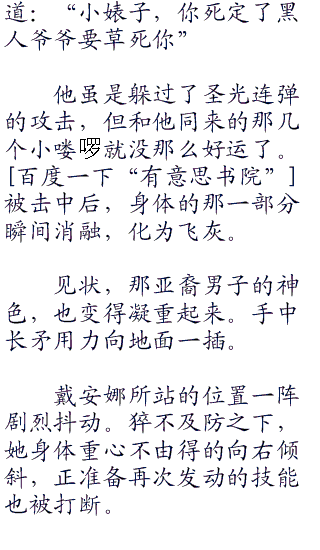 道：“小婊子，你死定了黑
人爷爷要草死你”
他虽是躲过了圣光连弹
的攻击，但和他同来的那几
个小喽啰就没那么好运了。
[百度一下“有意思书院”]
被击中后，身体的那一部分
瞬间消融，化为飞灰。
见状，那亚裔男子的神
色，也变得凝重起来。手中
长矛用力向地面一插。
戴安娜所站的位置一阵
剧烈抖动。猝不及防之下，
她身体重心不由得的向右倾
斜，正准备再次发动的技能
也被打断。